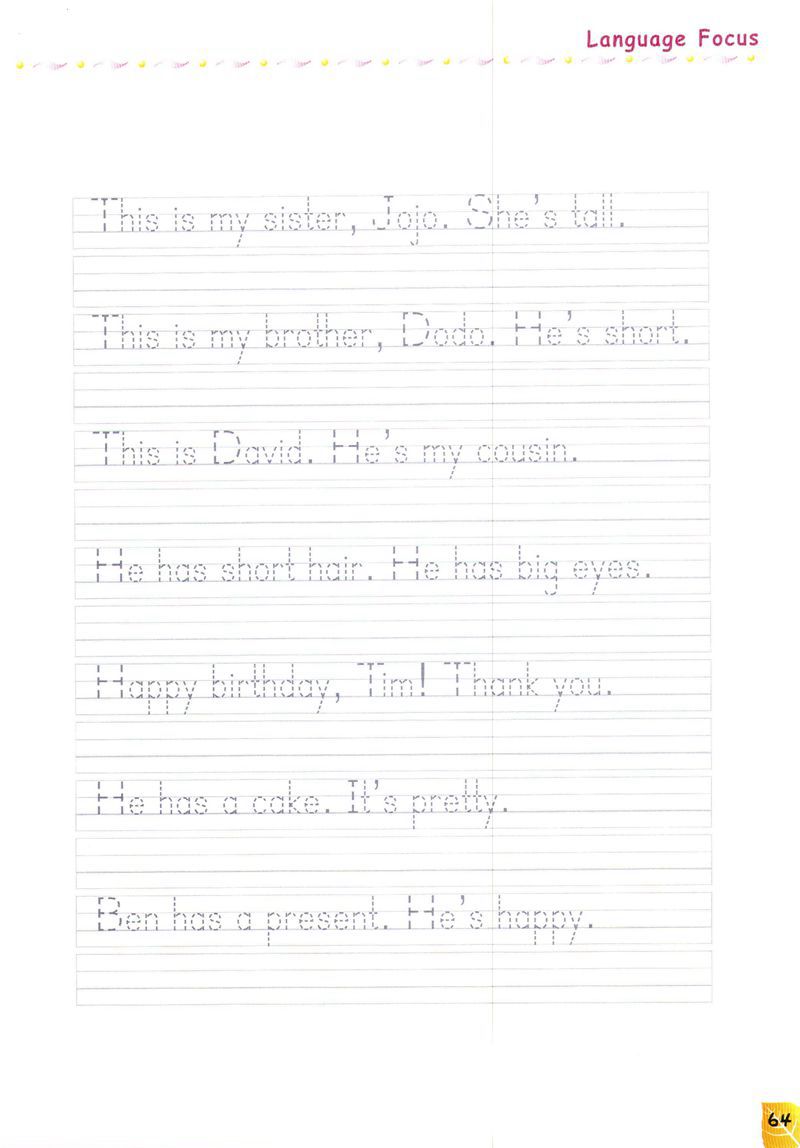 Language Focus
This is my sister, Jojo. She's tall.
This is my brother, Dodo. He's short.
This is David. He's my cousin.
He has short hair. He has big eyes.
Happy birthday, Tim! Thank you.
He has a cake. It's pretty.
Ben has a present. He's happy.
64